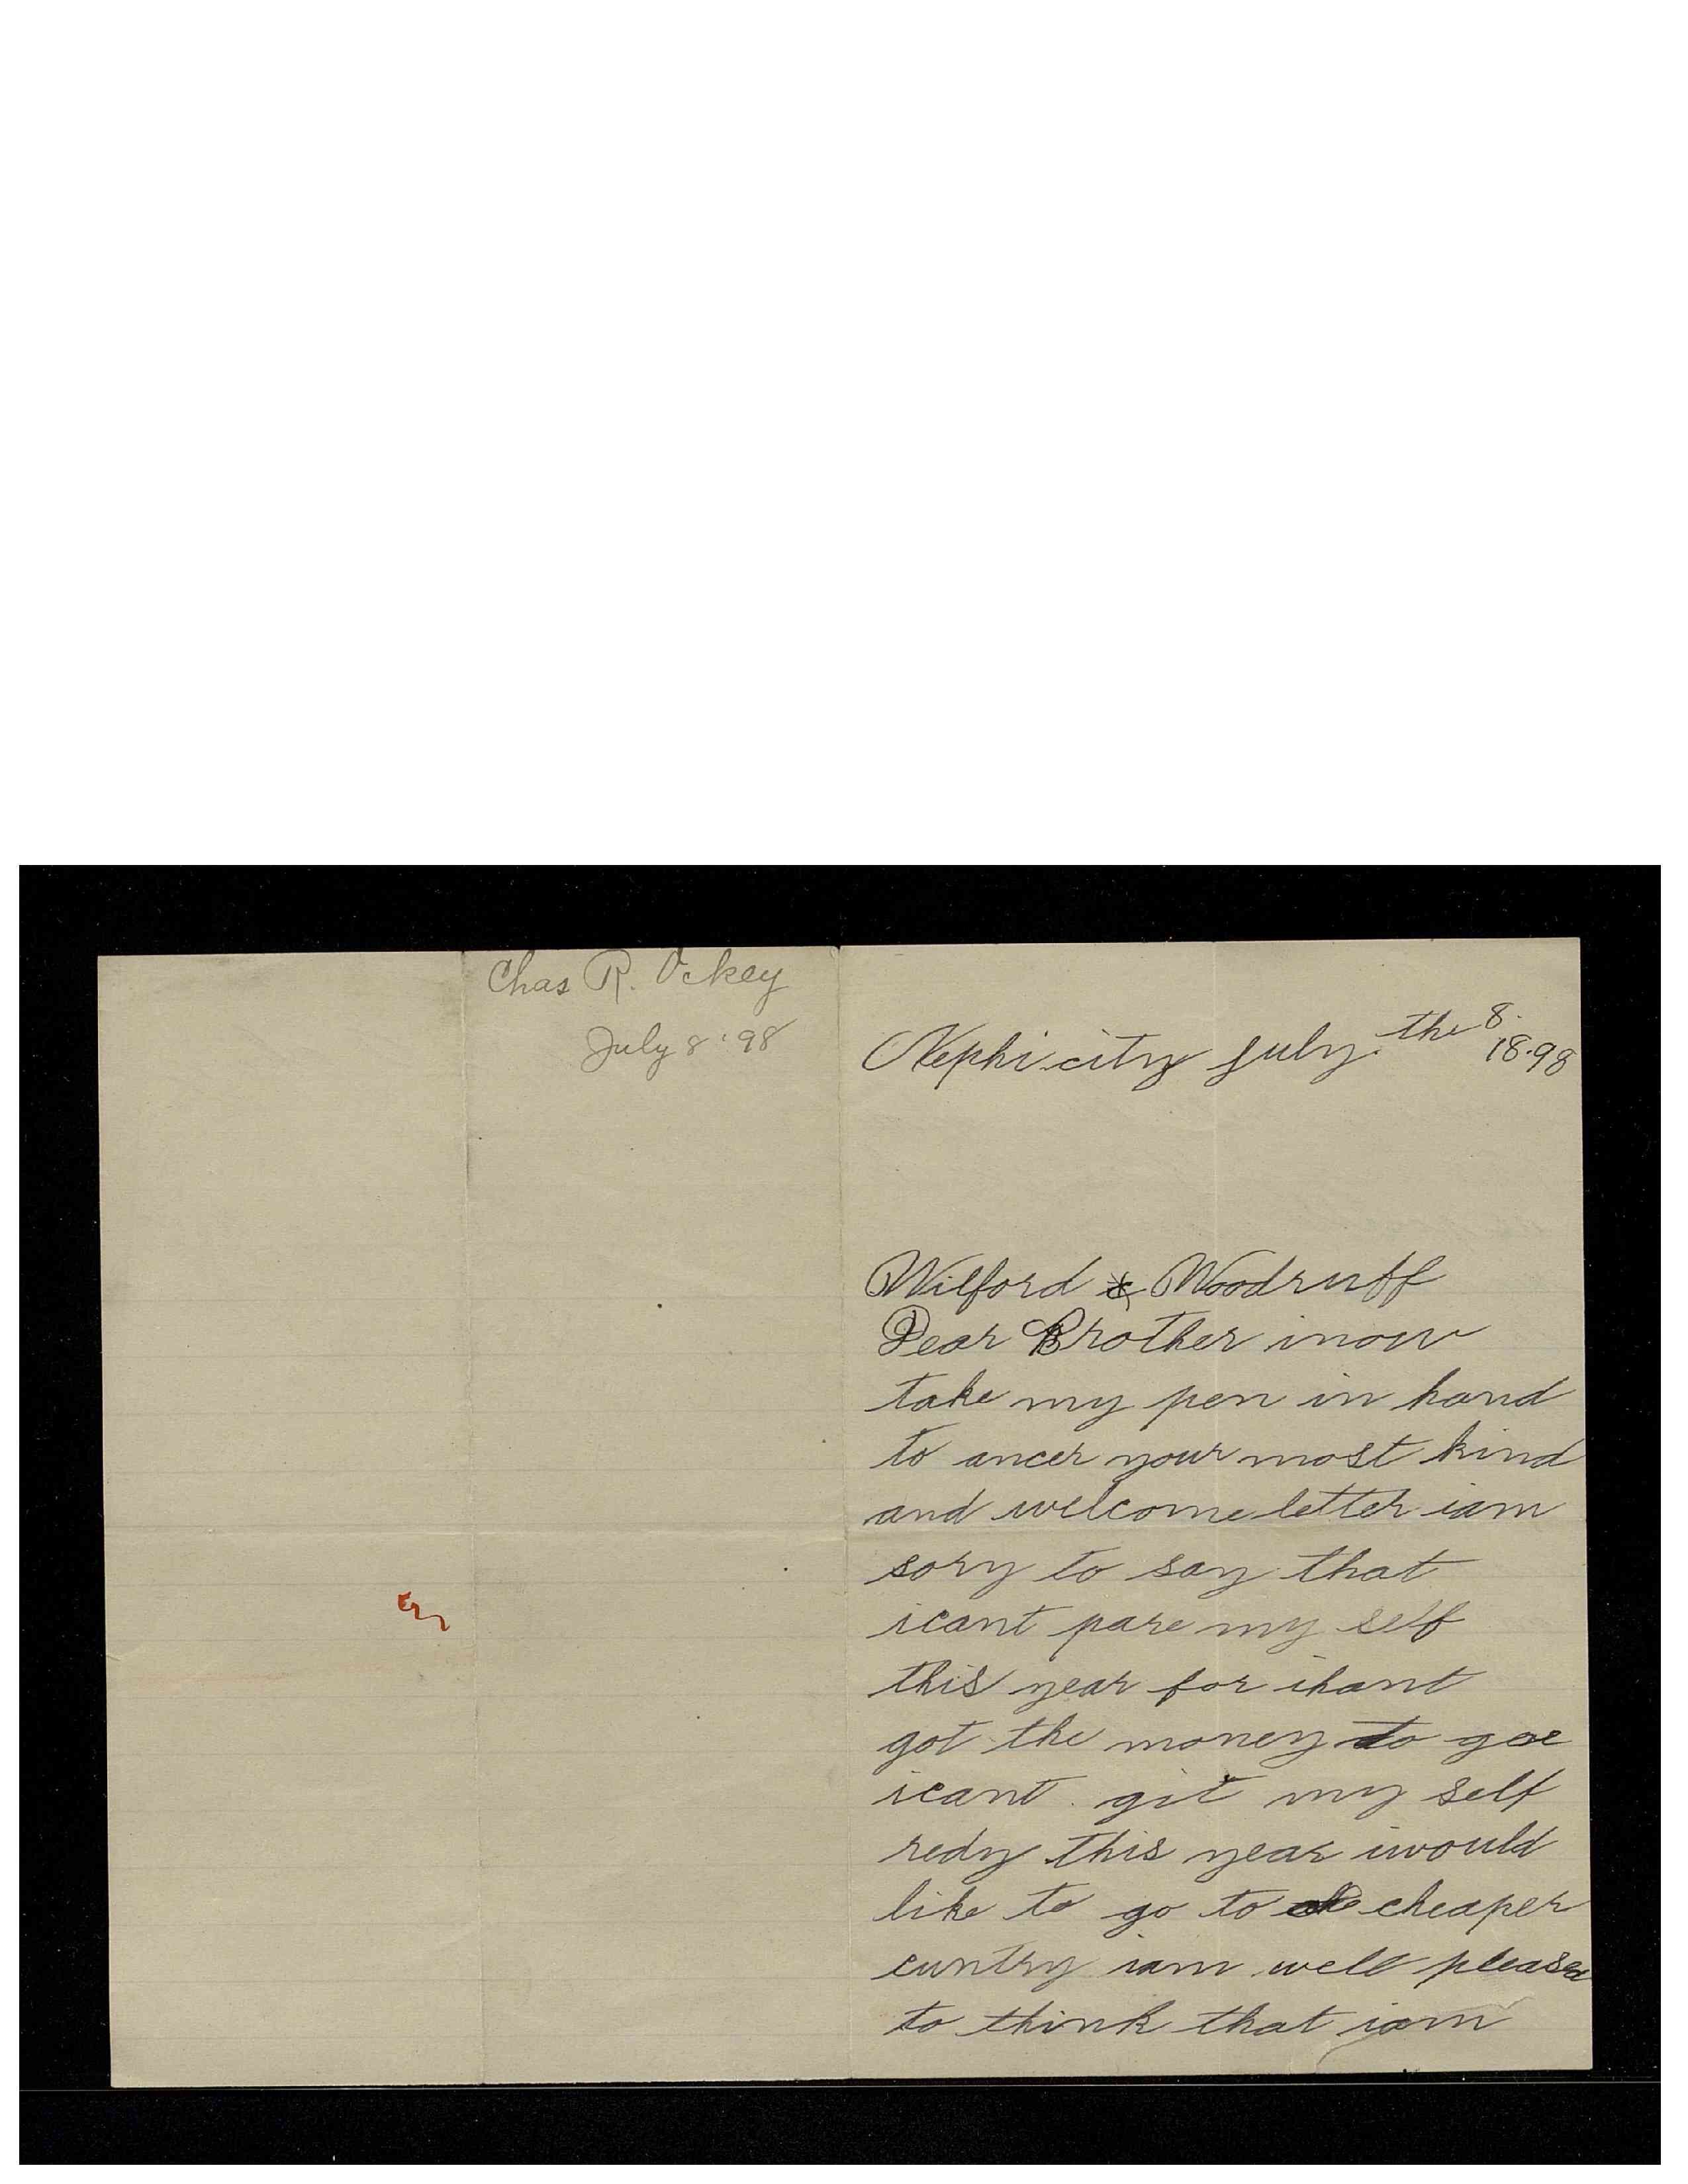 Chas R. Ockey
July 8 '98
Nephi city july the 8. 18.98
Wilford & Woodruff
Dear Brother inow
take my pen in hand
to ancer your most kind
and welcome letter iam
sory to say that
icant pare my self
this year for ihant
got the money to goe
icant git my self
redy this year iwould
like to go to cheaper
cuntry iam well pleased
to think that iam